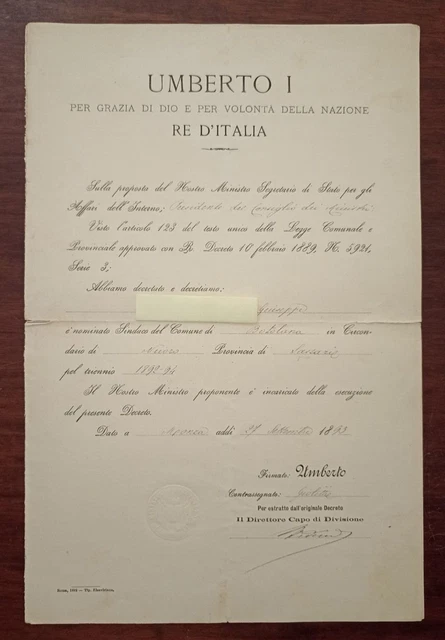 UMBERTO I
PER GRAZIA DI DIO E PER VOLONTÀ DELLA NAZIONE
RE D'ITALIA
Sulla proposta del Nostro Ministro Segretario di Stato per gli
Affari dell'Interno; Presidente del Consiglio dei Ministri
Visto l'articolo 123 del testo unico della Legge Comunale e
Provinciale approvato con R. Decreto 10 febbraio 1889, N. 5921,
Serie 3;
Abbiamo decretato e decretiamo:
Giuseppe
è nominato Sindaco del Comune di Bolotana in Circon-
dario di Nuoro Provincia di Sassari
pel triennio 1892-94
Il Nostro Ministro proponente è incaricato della esecuzione
del presente Decreto.
Dato a Monza addì 27 1892
Firmato: Umberto
Contrassegnato: Giolitti
Per estratto dall'originale Decreto
Il Direttore Capo di Divisione